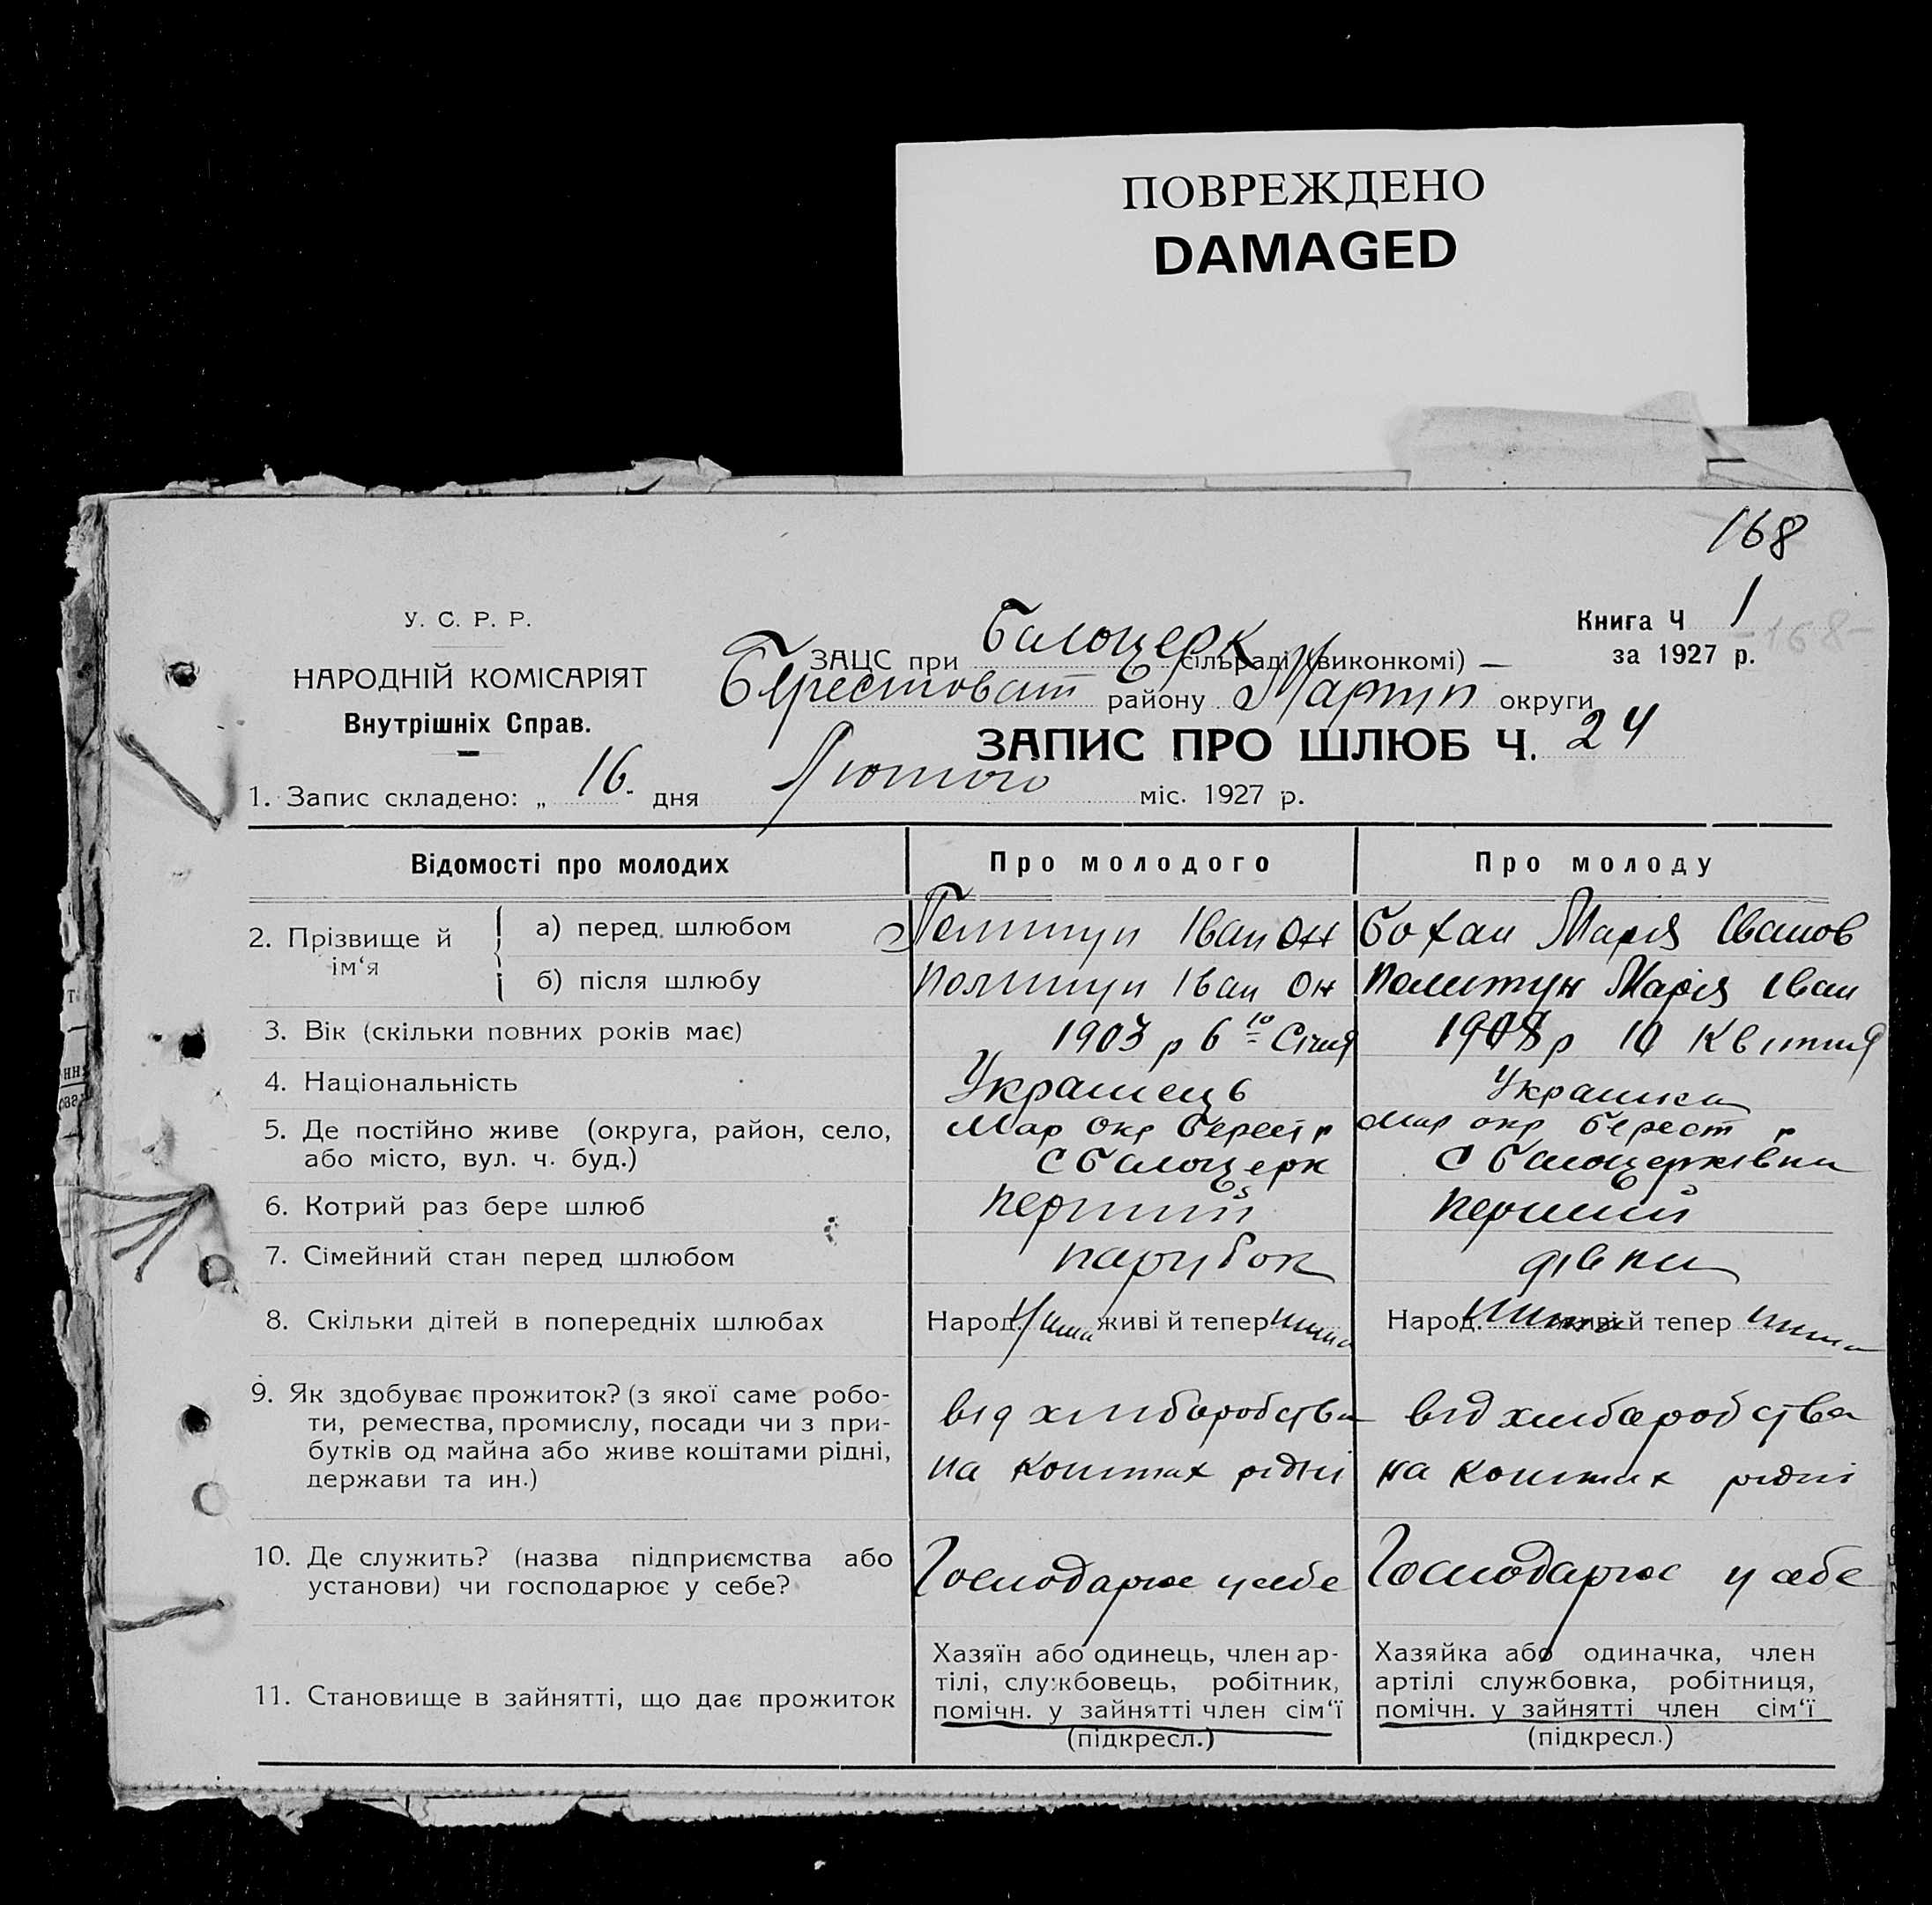 ПОВРЕЖДЕНО
DAMAGED
168
У. С. Р. Р.
НАРОДНІЙ КОМІСАРІЯТ
Внутрішніх Справ.
Книга Ч 1
-168-
за 1927 р.
ЗАЦС при Білоцерк сільраді (виконкомі) —
Берестоват району Маріуп округи
ЗАПИС ПРО ШЛЮБ Ч. 24
1. Запис складено: „ 16 дня Лютого міс. 1927 р.
Відомості про молодих
Про молодого
Про молоду
2. Прізвище й ім‘я
а) перед шлюбом
Іван Он
Бохан Марія Іванов
б) після шлюбу
Политун Іван Он
Политун Марія Іван
3. Вік (скільки повних років має)
1903 р 6го Січня
1908 р 10 Квітня
4. Національність
Украінець
Украінка
5. Де постійно живе (округа, район, село,
або місто, вул. ч. буд.)
Мар окр Берест р
С Білоцерк
Мар окр Берест р
С Білоцерківки
6. Котрий раз бере шлюб
перший
перший
7. Сімейний стан перед шлюбом
парубок
дівка
8. Скільки дітей в попередніх шлюбах
Народ. нима живі й тепер нима
Народ. нима живі й тепер нима
9. Як здобуває прожиток? (з якої саме робо-
ти, ремества, промислу, посади чи з при-
бутків од майна або живе коштами рідні,
держави та ин.)
від хліборобства
на коштах рідні
від хліборобства
на коштах рідні
10. Де служить? (назва підприємства або
установи) чи господарює у себе?
Господарює у себе
Господарює у себе
11. Становище в зайнятті, що дає прожиток
Хазяїн або одинець, член ар-
тілі, службовець, робітник,
помічн. у зайнятті член сім‘ї
(підкресл.)
Хазяйка або одиначка, член
артілі службовка, робітниця,
помічн. у зайнятті член сім‘ї
(підкресл.)